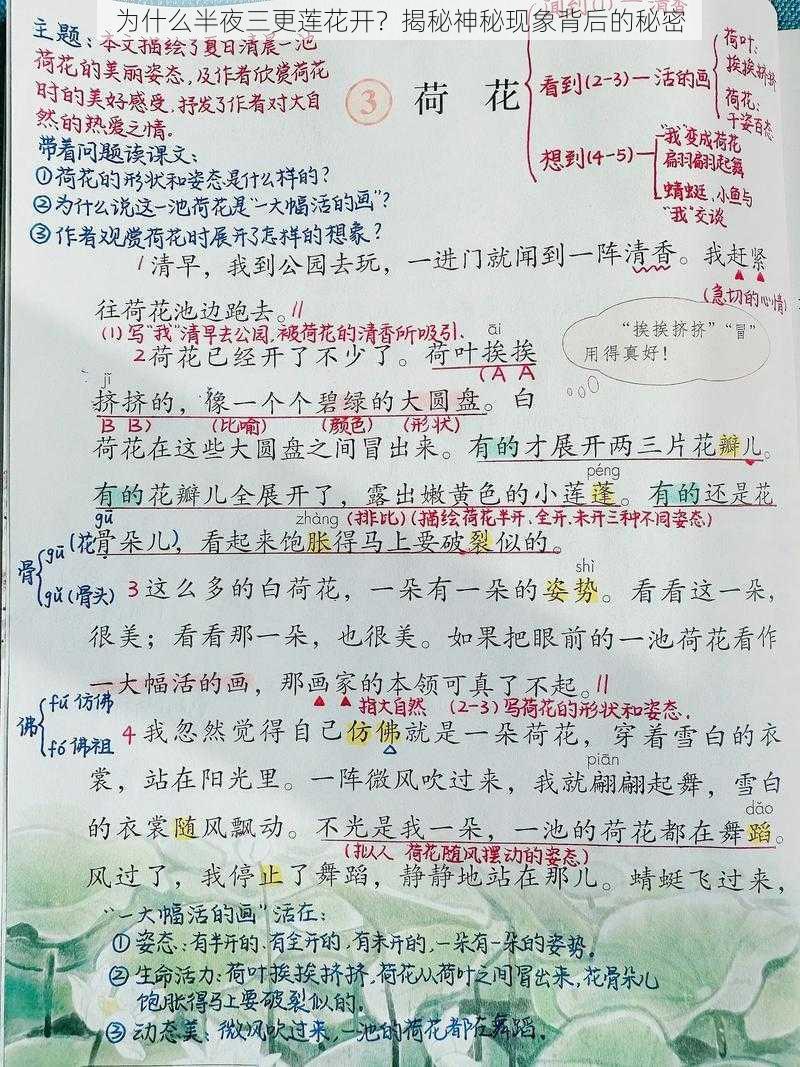 为什么半夜三更莲花开？揭秘神秘现象背后的秘密
主题：本文描绘了夏日清晨一池
荷花的美丽姿态，及作者欣赏荷花
时的美好感受，抒发了作者对大自
然的热爱之情。
③ 荷 花
闻到(1)—清香
看到(2-3)—活的画
荷叶：
挨挨挤挤
荷花：
千姿百态
想到(4-5)
"我"变成荷花
翩翩起舞
蜻蜓、小鱼与
"我"交谈
带着问题读课文：
①荷花的形状和姿态是什么样的？
②为什么说这一池荷花是"一大幅活的画"？
③作者观赏荷花时展开了怎样的想象？
1清早，我到公园去玩，一进门就闻到一阵清香。我赶紧
往荷花池边跑去。//
(急切的心情)
(1)写"我"清早去公园，被荷花的清香所吸引.
"挨挨挤挤""冒"
用得真好！
āi
2荷花已经开了不少了。荷叶挨挨
(A A
jǐ
挤挤的，像一个个碧绿的大圆盘。白
B B) (比喻) (颜色) (形状)
荷花在这些大圆盘之间冒出来。有的才展开两三片花瓣儿。
péng
有的花瓣儿全展开了，露出嫩黄色的小莲蓬。有的还是花
gū
zhàng (排比)(描绘荷花半开、全开、未开三种不同姿态)
骨朵儿，看起来饱胀得马上要破裂似的。
骨 gū(花骨朵儿)
gǔ(骨头)
shì
3这么多的白荷花，一朵有一朵的姿势。看看这一朵，
很美；看看那一朵，也很美。如果把眼前的一池荷花看作
一大幅活的画，那画家的本领可真了不起。//
指大自然 (2-3)写荷花的形状和姿态.
佛 fú 仿佛
fó 佛祖
4我忽然觉得自己仿佛就是一朵荷花，穿着雪白的衣
piān
裳，站在阳光里。一阵微风吹过来，我就翩翩起舞，雪白
dǎo
的衣裳随风飘动。不光是我一朵，一池的荷花都在舞蹈。
(拟人 荷花随风摆动的姿态)
风过了，我停止了舞蹈，静静地站在那儿。蜻蜓飞过来，
"一大幅活的画"活在：
①姿态：有半开的、有全开的，有未开的，一朵有一朵的姿势。
②生命活力：荷叶挨挨挤挤，荷花从荷叶之间冒出来，花骨朵儿
饱胀得马上要破裂似的。
③动态美：微风吹过来，一池的荷花都在舞蹈。